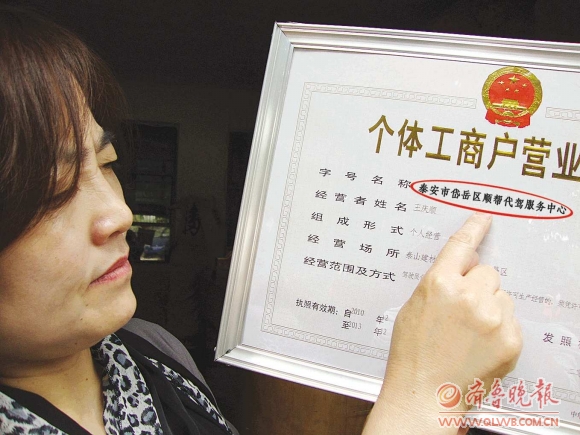 个体工商户营业
字号名称 泰安市岱岳区顺帮代驾服务中心
经营者姓名 王庆顺
组成形式 个人经营
经营场所 泰山建材
经营范围及方式
执照有效期：自2010 年
至2013 年
发照
齐鲁晚报
WWW.QLWB.COM.CN